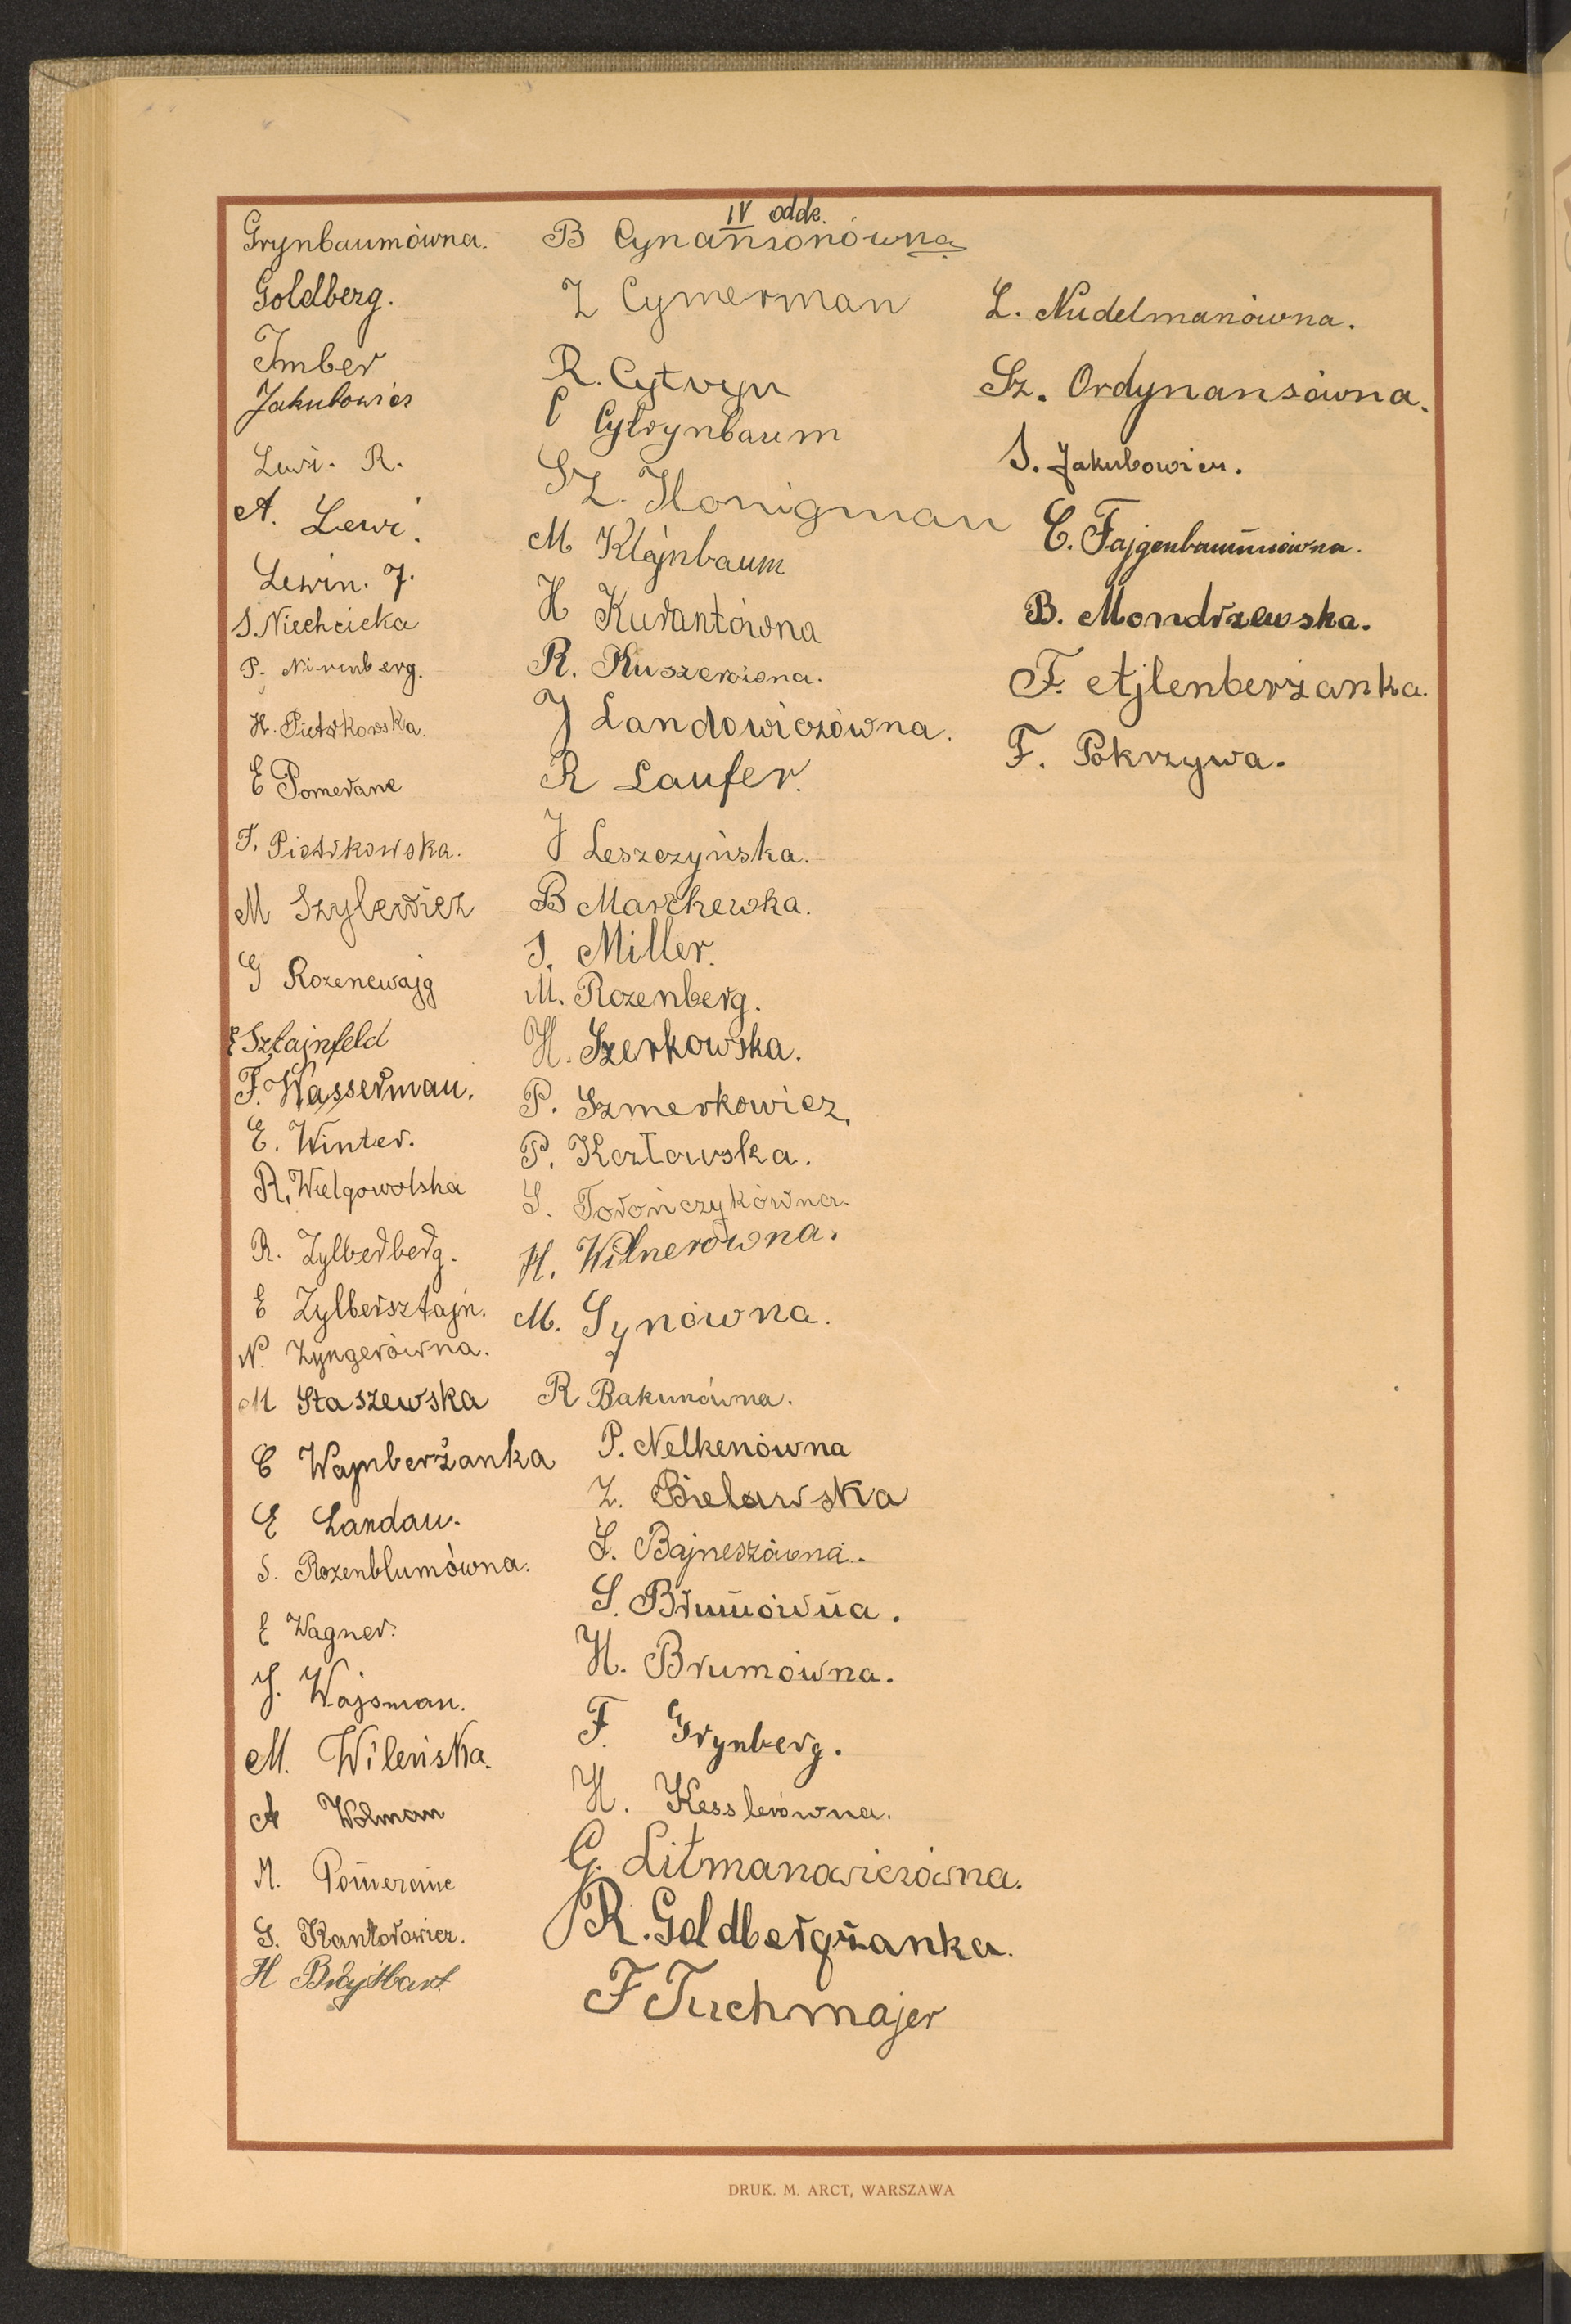 IV oddz.
Grynbaumówna.
Goldberg.
Imber
Jakubowicz
Lewi. R.
A. Lewi.
Lewin. J.
S. Niechcicka
P. Nirenberg.
H. Piotrkowska.
E Pomeranc
F. Piotrkowska.
M Szylewicz
G Rozencwajg
E Sztajnfeld
F. Wasserman.
E. Winter.
R. Wielgowolska
R. Zylberberg.
E Zylbersztajn.
N. Zyngerówna.
M Staszewska
C Wajnberżanka
E Landau.
S. Rozenblumówna.
E Wagner.
J. Wajsman.
M. Wileńska.
A Wolman
M. Pomeranc
S. Kantorowicz.
H Brajtbart.
B Cynamonówna
Z Cymerman
R. Cytryn
C Cytrynbaum
Sz. Honigman
M Klajnbaum
H Kurantówna
R. Kuszerówna.
J Landowiczówna.
R Laufer.
J Leszczyńska.
B Marchewka.
S. Miller.
M. Rozenberg.
H. Szerkowska.
P. Szmerkowicz.
P. Kozłowska.
S. Torończykówna.
H. Wilnerówna.
M. Synówna.
R Bakunówna.
P. Nelkenówna
Z. Bielawska
S. Bajneszówna.
S. Brumówna.
H. Brumówna.
F. Grynberg.
H. Kesslerówna.
G. Litmanowiczówna.
R. Goldbergżanka.
F Tuchmajer
L. Nudelmanówna.
Sz. Ordynansówna.
S. Jakubowicz.
C. Fajgenbaumówna.
B. Mondrzewska.
F. Ajlenberżanka.
F. Pokrzywa.
DRUK. M. ARCT, WARSZAWA